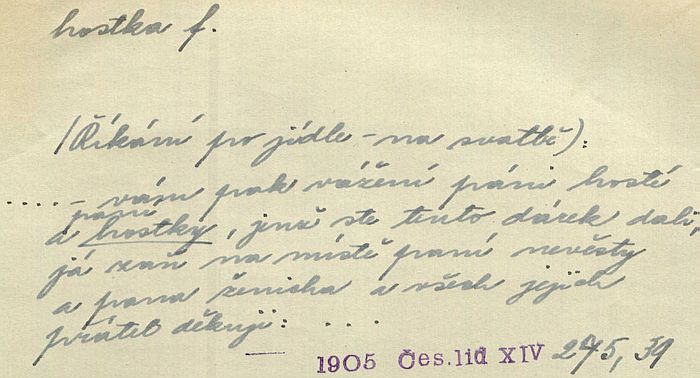 hostka f.
(Říkání po jídle – na svatbě):
.... – vám pak vážení páni hosté
paní
a hostky, jenž ste tento dárek dali,
já zaň na místě paní nevěsty
a pana ženicha a všech jejich
přátel děkuji: ....
— 1905 Čes. lid XIV 275, 39